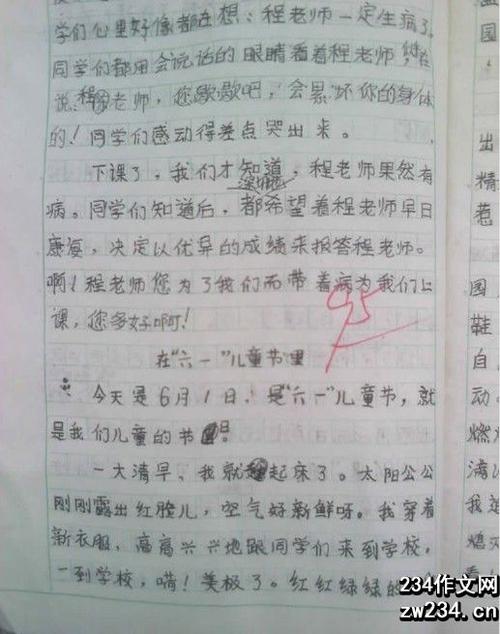 学们心里好像都在想：程老师一定生病了
同学们都用会说话的眼睛看着程老师，似在
说程老师，您歇歇吧，会累坏你的身体
的！同学们感动得差点哭出来。
下课了，我们才知道，程老师果然有
病。同学们知道后，都希望着程老师早日
康复，决定以优异的成绩来报答程老师。
啊！程老师您为了我们而带着病为我们上
课，您多好啊！
95
在“六一”儿童节里
今天是6月1日，是“六一”儿童节，就
是我们儿童的节日。
一大清早，我就起床了。太阳公公
刚刚露出红脸儿，空气好新鲜呀。我穿着
新衣服，高高兴兴地跟同学们来到学校，
一到学校，嗬！美极了。红红绿绿的
国
出
精
惹
国
鞋
自
动
燃
满
我
熄
看
234作文网
zw234.cn